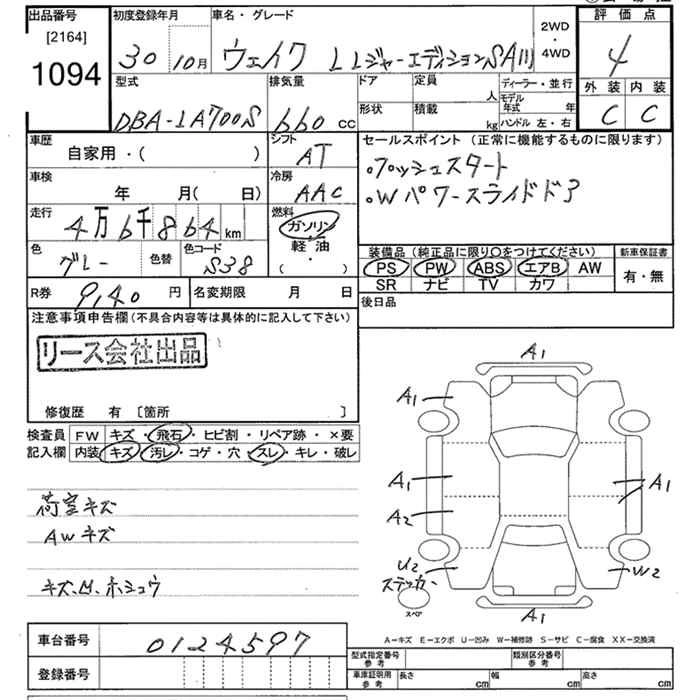 出品番号 初度登録年月 車名・グレード 評価点
[2164]
1094
30 10月 ウェイク L Lジャーエディション SAIII
2WD
・
4WD
4
外装 内装
C C
型式 排気量 ドア 定員 人 ディーラー・並行
モデル年式 年
DBA-LA700S 660 cc 形状 積載 kg ハンドル 左・右
車歴 シフト セールスポイント(正常に機能するものに限ります)
自家用・( ) AT
・プッシュスタート
車検 冷房
年 月(日) AAC
・Wパワースライドドア
走行 燃料
4万6千864km ガソリン
軽油
・( )
色 色替 色コード
グレー S38
装備品(純正品に限り○をつけてください) 新車保証書
PS PW ABS エアB AW 有・無
SR ナビ TV カワ
R券 9,140円 名変期限 月 日
後日品
注意事項申告欄(不具合内容等は具体的に記入して下さい)
リース会社出品
修復歴 有 [箇所 ]
検査員 FW キズ・飛石・ヒビ割・リペア跡・×要
記入欄 内装 キズ・汚レ・コゲ・穴・スレ・キレ・破レ
荷室キズ
AWキズ
キズ、凹、ホショウ
A1
A1
A1 A1
A2
U2 W2
ステッカー
スペア
A1
A-キズ E-エクボ U-凹み W-補修跡 S-サビ C-腐食 XX-交換済
車台番号 0124597
型式指定番号 参考 類別区分番号 参考
登録番号
車庫証明用 参考 長さ cm 幅 cm 高さ cm